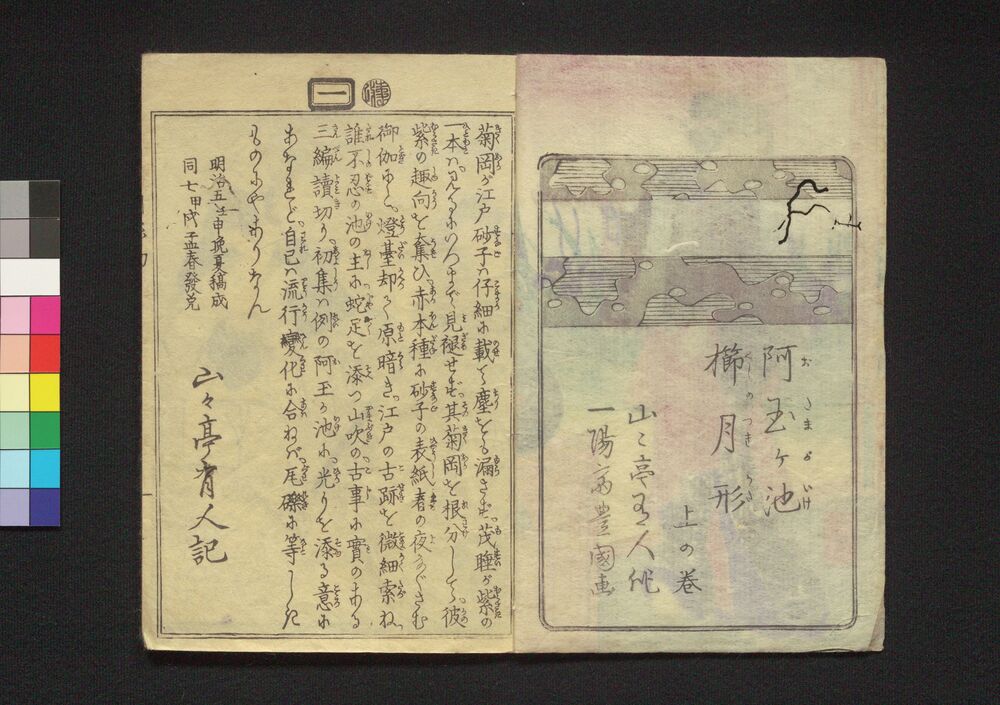 阿玉ヶ池
櫛月形
上の巻
山々亭有人作
一陽斎豊國画
一
菊岡が江戸砂子ハ仔細に載て塵をも漏さず茂睡が紫の
一本ハ
見褪せず其菊岡を根分しして彼
紫の趣向を奪ひ赤本種に砂子の表紙春の夜の
御伽にと燈臺却て原暗き江戸の古跡を微細索ね
誰不忍の池の主に蛇足を添つ山吹の古事に實のある
三編讀切り初集ハ例の阿玉が池に光りを添る意に
あなれど自己ハ流行變化に合ねバ瓦礫に等しき
ものにやありなん
明治五壬申晩夏稿成
同七甲戌孟春發兌
山々亭有人記